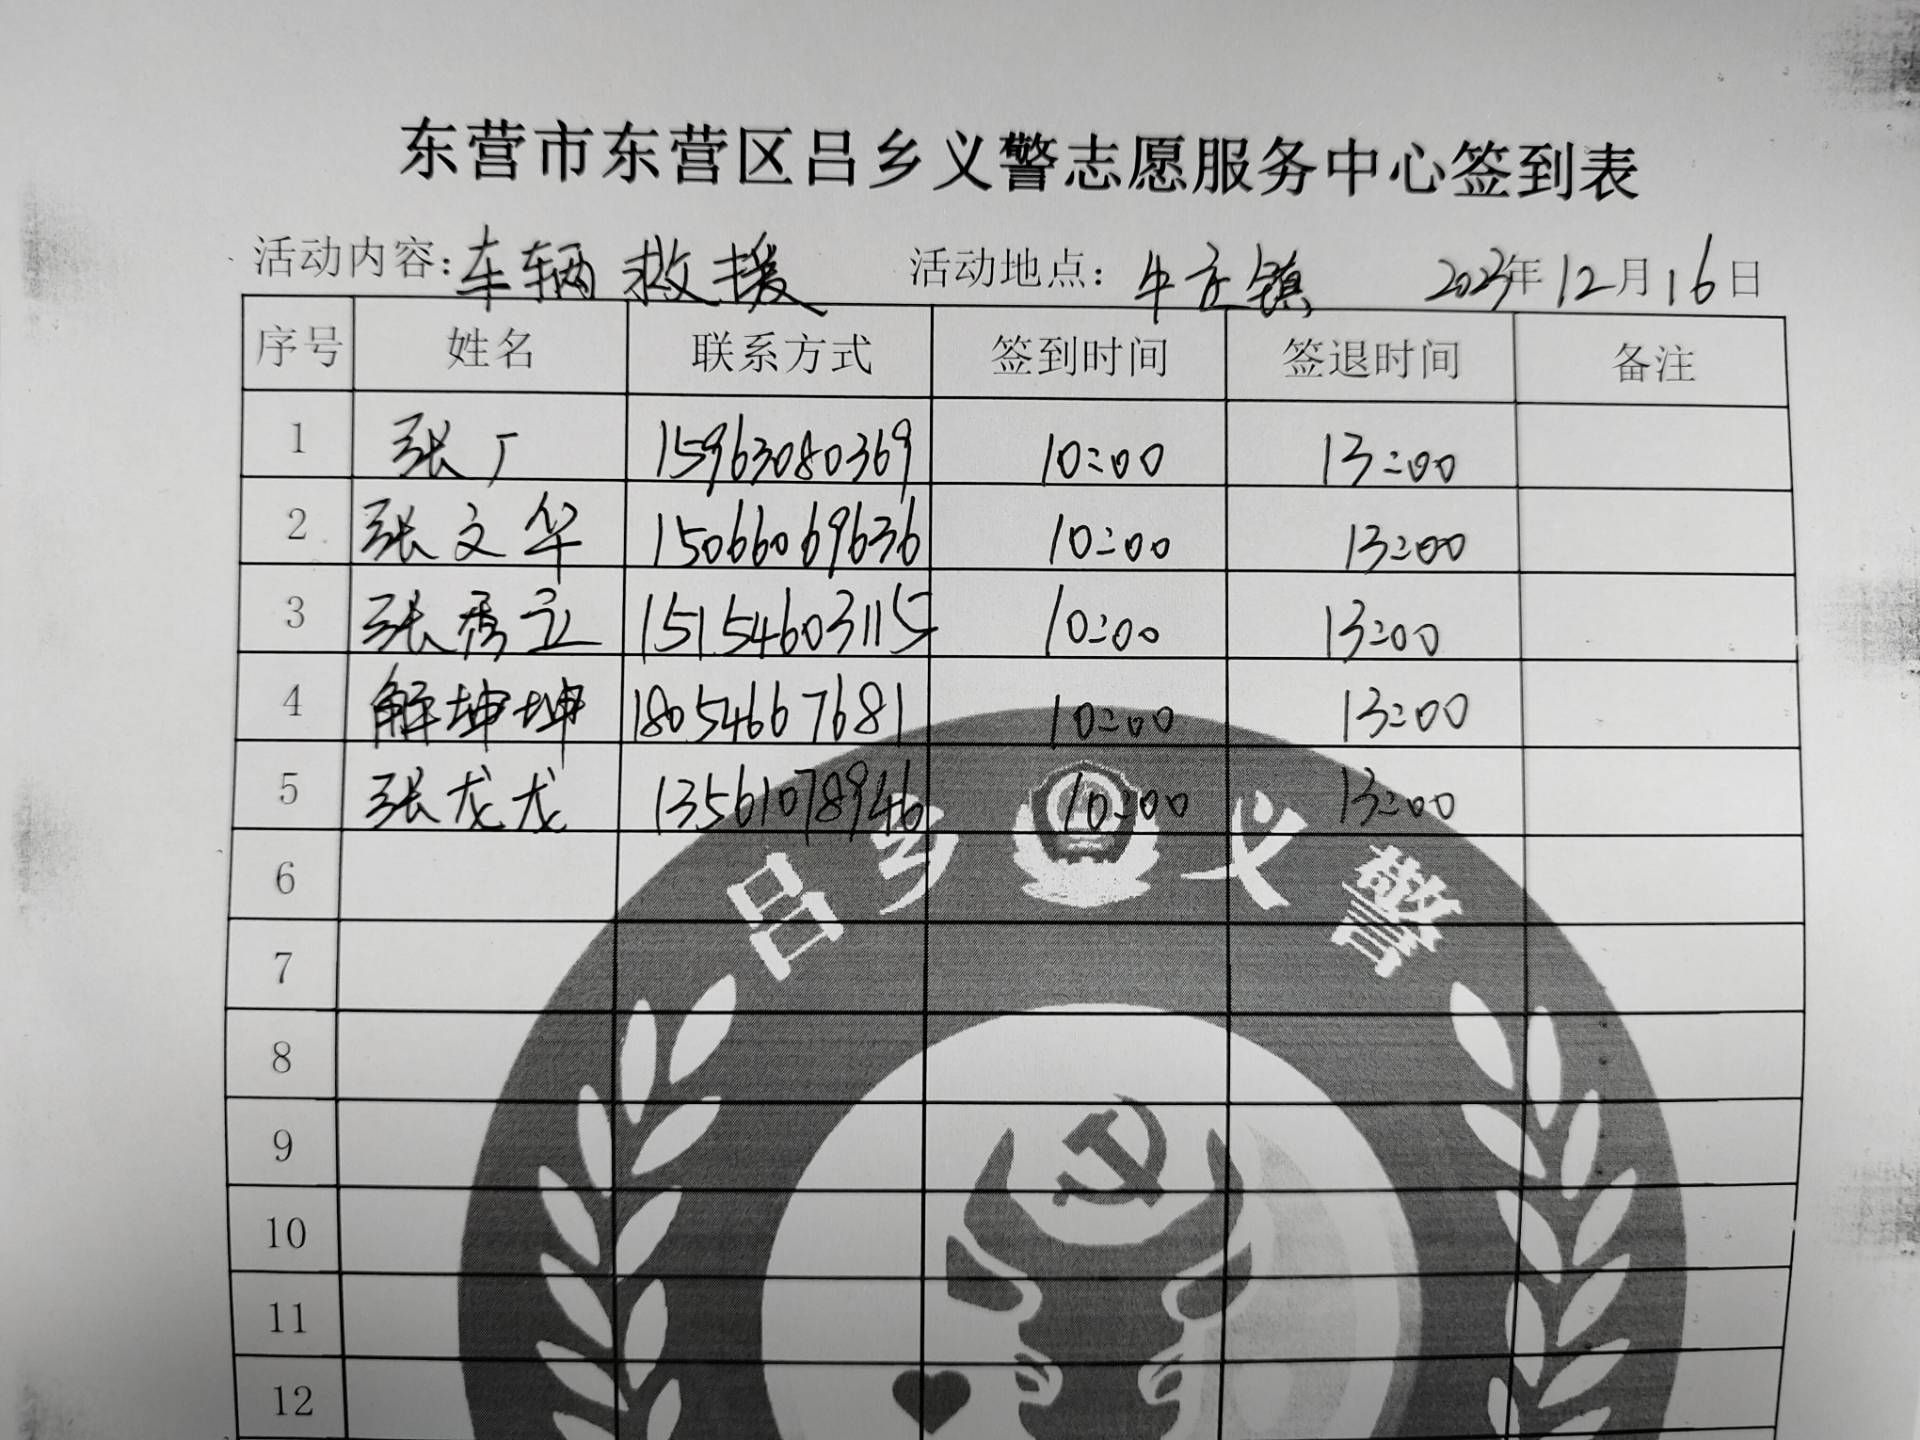 东营市东营区吕乡义警志愿服务中心签到表
活动内容：车辆救援 活动地点：牛庄镇 2023年12月16日
序号 姓名 联系方式 签到时间 签退时间 备注
1 张广 15963080369 10:00 13:00
2 张文华 15066069636 10:00 13:00
3 张秀立 15154603115 10:00 13:00
4 解坤坤 18054667681 10:00 13:00
5 张龙龙 13561078946 10:00 13:00
6
7
8
9
10
11
12
吕乡义警